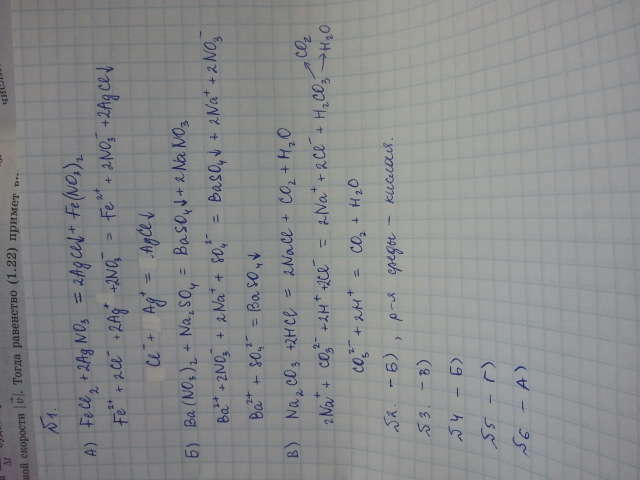 ной скорости |v⃗|. Тогда равенство (1.22) примет
числи
№1.
А) FeCl₂ + 2AgNO₃ = 2AgCl↓ + Fe(NO₃)₂
Fe²⁺ + 2Cl⁻ + 2Ag⁺ + 2NO₃⁻ = Fe²⁺ + 2NO₃⁻ + 2AgCl↓
Cl⁻ + Ag⁺ = AgCl↓
Б) Ba(NO₃)₂ + Na₂SO₄ = BaSO₄↓ + 2NaNO₃
Ba²⁺ + 2NO₃⁻ + 2Na⁺ + SO₄²⁻ = BaSO₄↓ + 2Na⁺ + 2NO₃⁻
Ba²⁺ + SO₄²⁻ = BaSO₄↓
В) Na₂CO₃ + 2HCl = 2NaCl + CO₂ + H₂O
2Na⁺ + CO₃²⁻ + 2H⁺ + 2Cl⁻ = 2Na⁺ + 2Cl⁻ + H₂CO₃ ↗ CO₂ → H₂O
CO₃²⁻ + 2H⁺ = CO₂ + H₂O
№2. – Б) , р-я среды – кислая.
№3. – В)
№4 – Б)
№5 – Г)
№6 – А)